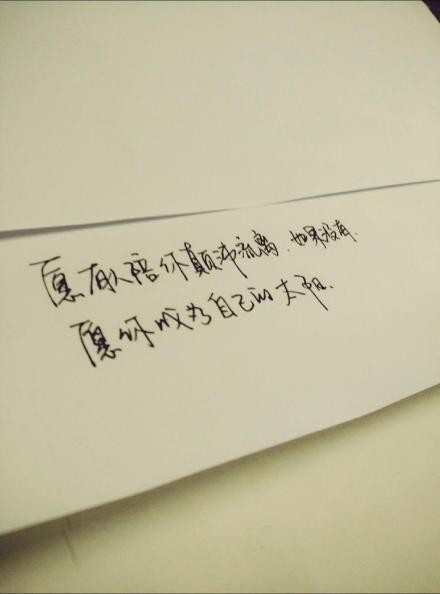 愿有人陪你颠沛流离.如果没有.
愿你成为自己的太阳.